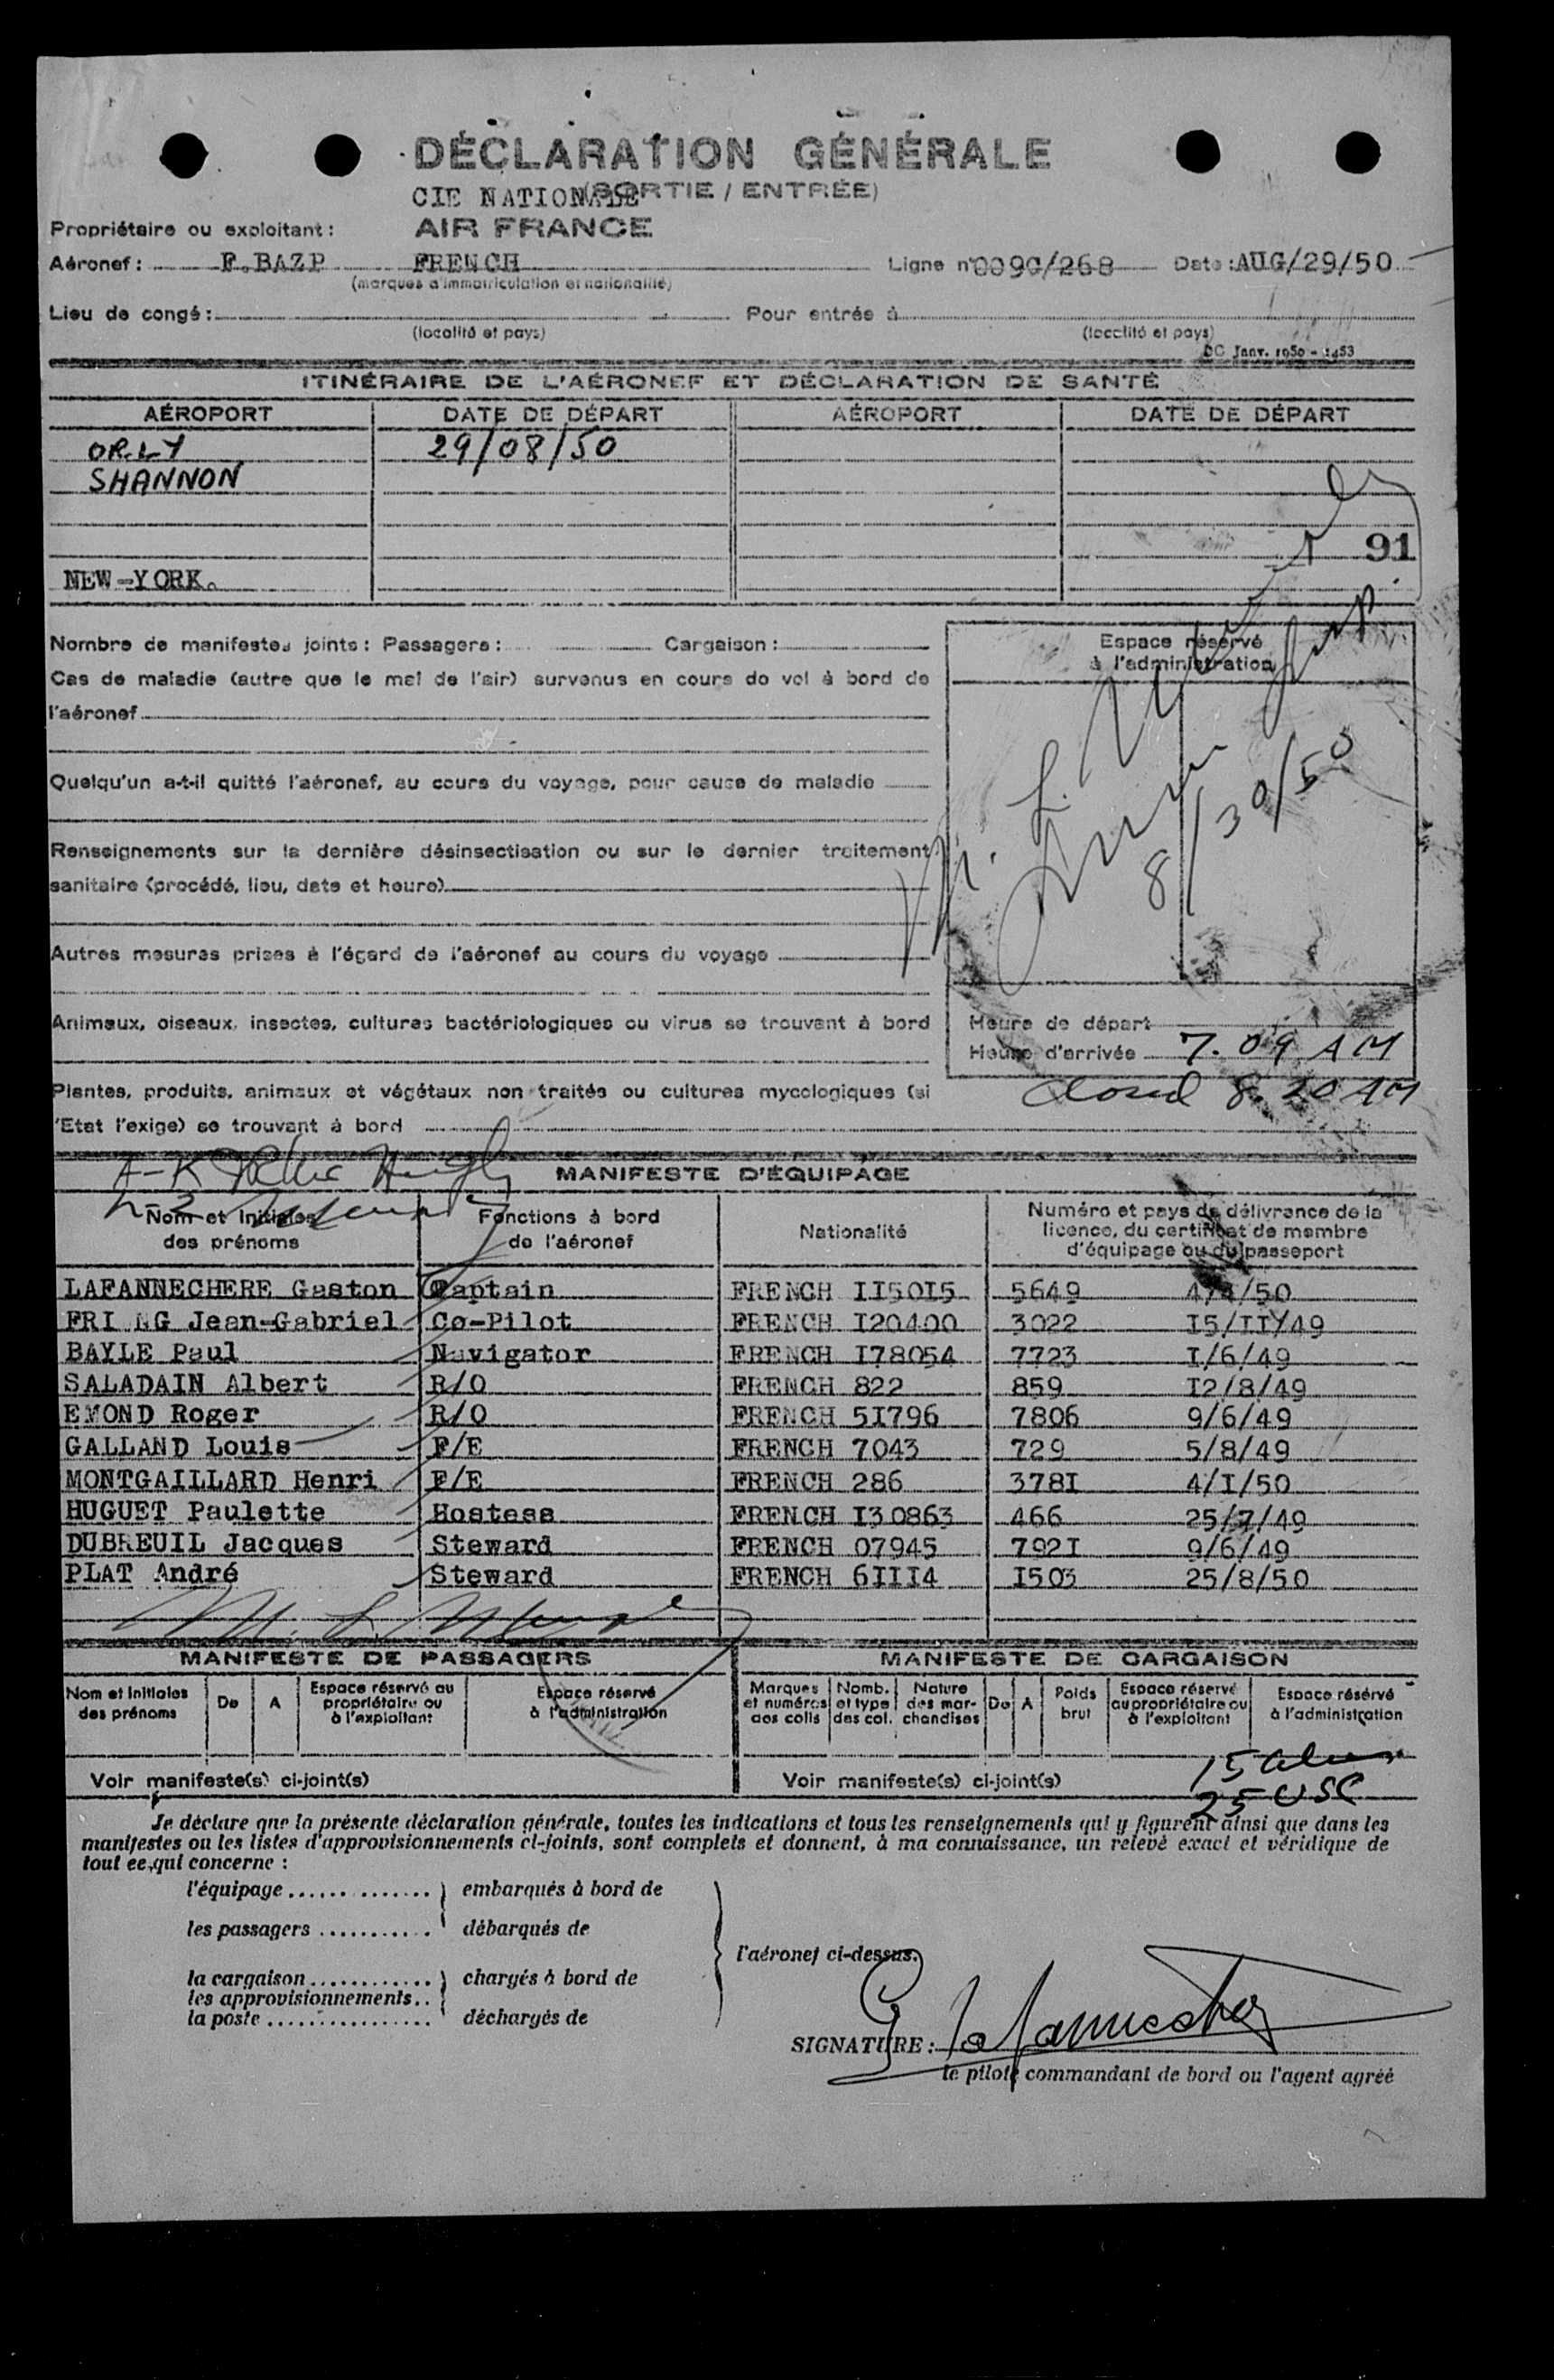 DÉCLARATION GÉNÉRALE
(SORTIE / ENTRÉE)
CIE NATIONALE
Propriétaire ou exploitant : AIR FRANCE
Aéronef : F.BAZP FRENCH Ligne n° 0090/268 Date : AUG/29/50
(marques d'immatriculation et nationalité)
Lieu de congé : Pour entrée à
(localité et pays) (localité et pays)
DC Janv. 1950 - 1453
ITINÉRAIRE DE L'AÉRONEF ET DÉCLARATION DE SANTÉ
AÉROPORT DATE DE DÉPART AÉROPORT DATE DE DÉPART
ORLY 29/08/50
SHANNON
91
NEW-YORK.
Nombre de manifestes joints : Passagers : Cargaison :
Espace réservé
à l'administration
Cas de maladie (autre que le mal de l'air) survenus en cours de vol à bord de
l'aéronef
Quelqu'un a-t-il quitté l'aéronef, au cours du voyage, pour cause de maladie
8/30/50
Renseignements sur la dernière désinsectisation ou sur le dernier traitement
sanitaire (procédé, lieu, date et heure)
Autres mesures prises à l'égard de l'aéronef au cours du voyage
Animaux, oiseaux, insectes, cultures bactériologiques ou virus se trouvant à bord
Heure de départ
Heure d'arrivée 7.09 AM
Plantes, produits, animaux et végétaux non traités ou cultures mycologiques (si
closed 8.20 AM
'Etat l'exige) se trouvant à bord
MANIFESTE D'ÉQUIPAGE
Nom et Initiales des prénoms Fonctions à bord de l'aéronef Nationalité Numéro et pays de délivrance de la licence, du certificat de membre d'équipage ou du passeport
LAFANNECHERE Gaston Captain FRENCH II50I5 5649 4/4/50
FRI NG Jean-Gabriel Co-Pilot FRENCH I20400 3022 I5/II/49
BAYLE Paul Navigator FRENCH I78054 7723 I/6/49
SALADAIN Albert R/O FRENCH 822 859 I2/8/49
EMOND Roger R/O FRENCH 5I796 7806 9/6/49
GALLAND Louis F/E FRENCH 7043 729 5/8/49
MONTGAILLARD Henri F/E FRENCH 286 378I 4/I/50
HUGUET Paulette Hostess FRENCH I30863 466 25/7/49
DUBREUIL Jacques Steward FRENCH 07945 792I 9/6/49
PLAT André Steward FRENCH 6III4 I503 25/8/50
MANIFESTE DE PASSAGERS MANIFESTE DE CARGAISON
Nom et Initiales des prénoms De A Espace réservé au propriétaire ou à l'exploitant Espace réservé à l'administration Marques et numéros des colis Nomb. et type des col. Nature des marchandises De A Poids brut Espace réservé au propriétaire ou à l'exploitant Espace réservé à l'administration
15
Voir manifeste(s) ci-joint(s) Voir manifeste(s) ci-joint(s) 25 USC
Je déclare que la présente déclaration générale, toutes les indications et tous les renseignements qui y figurent ainsi que dans les
manifestes ou les listes d'approvisionnements ci-joints, sont complets et donnent, à ma connaissance, un relevé exact et véridique de
tout ce qui concerne :
l'équipage .............. embarqués à bord de
les passagers ........... débarqués de
l'aéronef ci-dessus.
la cargaison ............ chargés à bord de
les approvisionnements ..
la poste ................ déchargés de
SIGNATURE : G Lafannechere
le pilote commandant de bord ou l'agent agréé